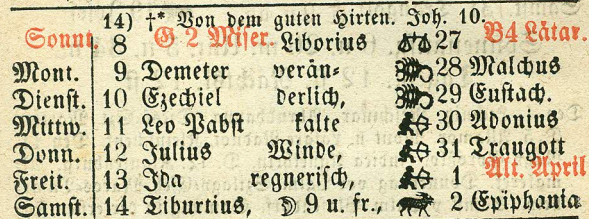 14) †* Von dem guten Hirten. Joh. 10.
Sonnt. 8 G 2 Miser. Liborius 27 B4 Lätar.
Mont. 9 Demeter verän- 28 Malchus
Dienst. 10 Ezechiel derlich, 29 Eustach.
Mittw. 11 Leo Pabst kalte 30 Adonius
Donn. 12 Julius Winde, 31 Traugott
Freit. 13 Ida regnerisch, 1 Alt. April
Samst. 14. Tiburtius, ☽ 9 u. fr., 2 Epiphania